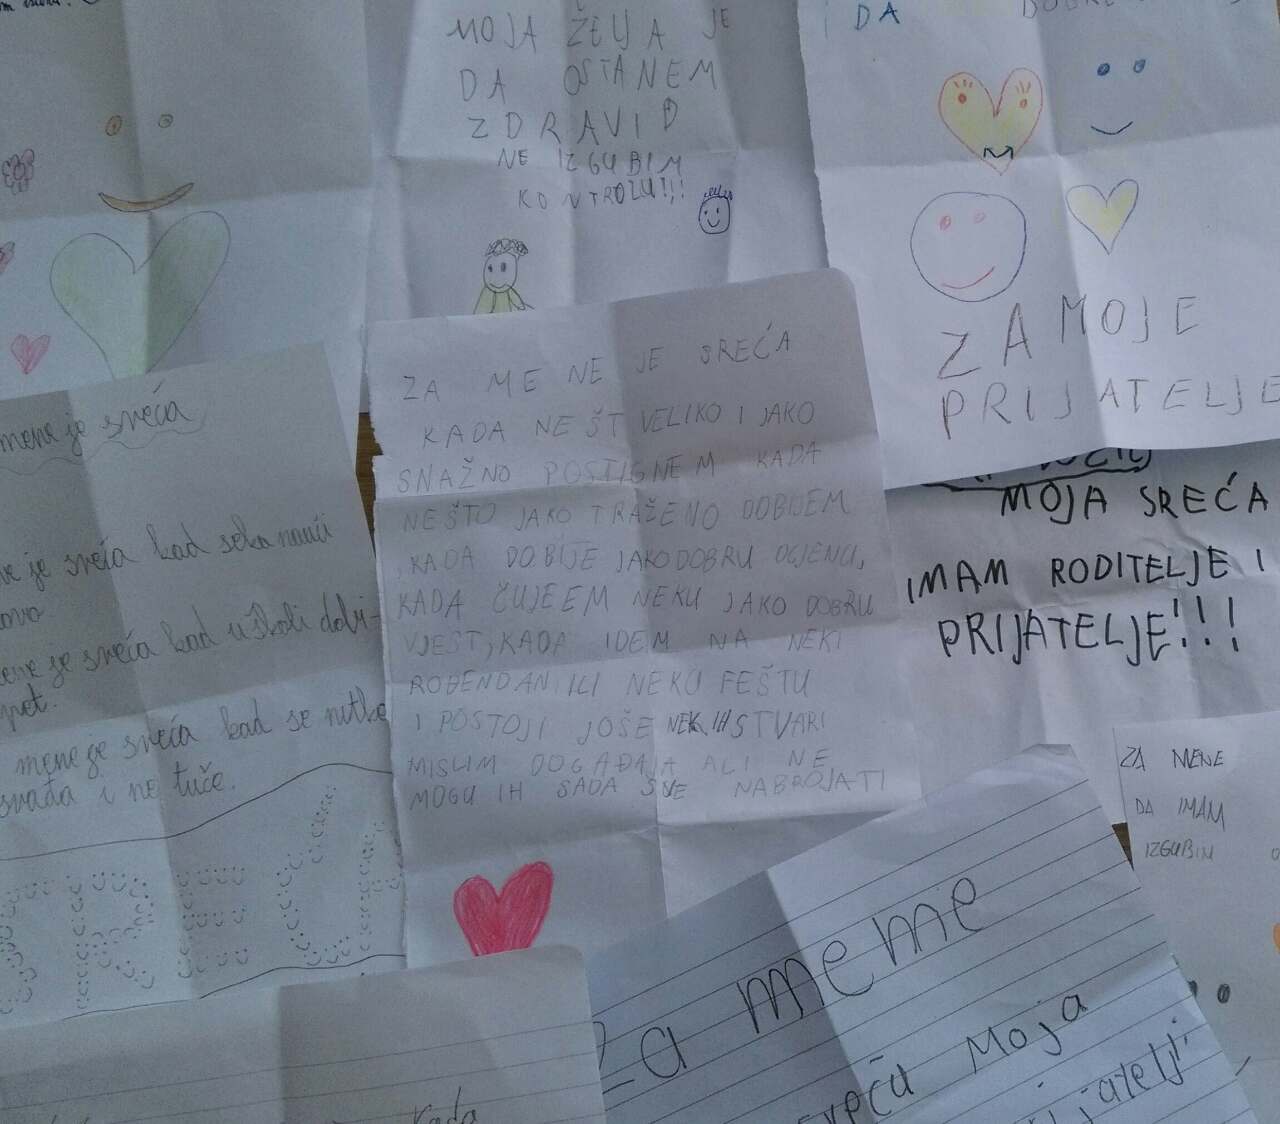 MOJA ŽELJA JE
DA OSTANEM
ZDRAV I D
NE IZGUBIM
KONTROLU!!!
I DA
ZA MOJE
PRIJATELJE
mene je sreća
je sreća kad seka nauči
ovo
mene je sreća kad u školi dobi-
pet.
mene je sreća kad se nitko
svađa i ne tuče.
ZA MENE JE SREĆA
KADA NEŠT VELIKO I JAKO
SNAŽNO POSTIGNEM KADA
NEŠTO JAKO TRAŽENO DOBIJEM
,KADA DOBIJE JAKO DOBRU OCJENU,
KADA ČUJEEM NEKU JAKO DOBRU
VJEST, KADA IDEM NA NEKI
ROĐENDAN ILI NEKU FEŠTU
I POSTOJI JOŠE NEKIH STVARI
MISLIM DOGAĐAJA ALI NE
MOGU IH SADA SVE NABROJATI
MOJA SREĆA
IMAM RODITELJE I
PRIJATELJE!!!
ZA MENE
DA IMAM
IZGUBIM
Za meme
sreća Moja
kada